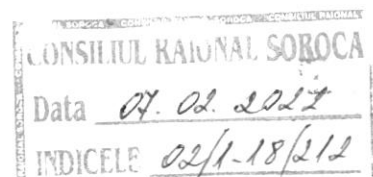 CONSILIUL RAIONAL SOROCA
Data 07. 02. 2022
INDICELE 02/1-18/212